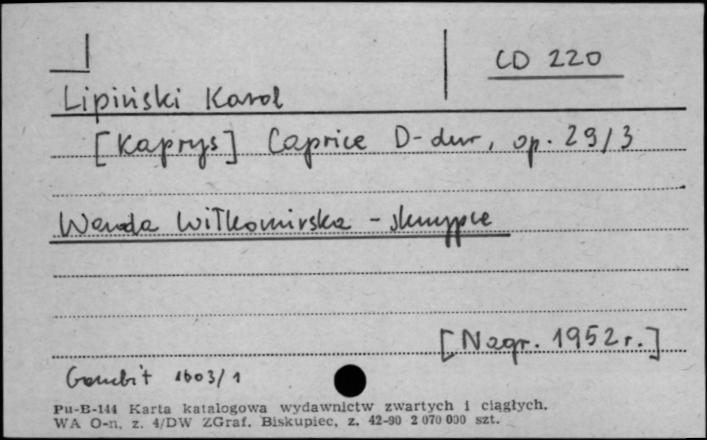 CD 220
Lipiński Karol
[Kaprys] Caprice D-dur, op. 29/3
Wanda Wiłkomirska - skrzypce
[Nagr. 1952 r.]
Gambit 1603/1
Pu-B-144 Karta katalogowa wydawnictw zwartych i ciągłych.
WA O-n, z. 4/DW ZGraf. Biskupiec, z. 42-90 2 070 000 szt.